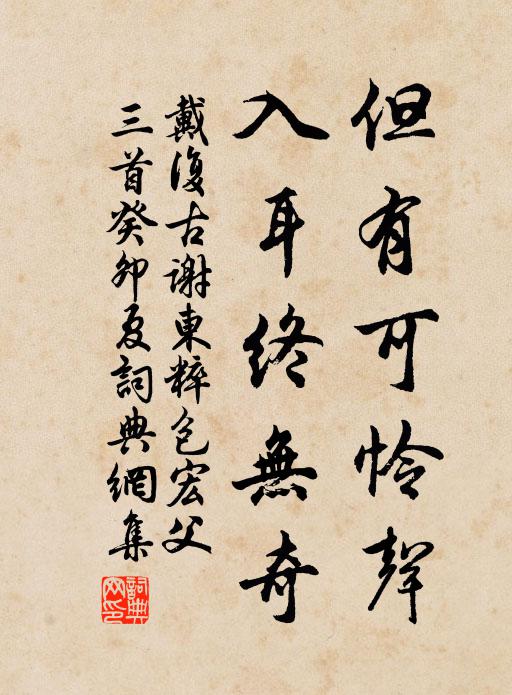 但有可憐聲
入耳終無奇
戴復古謝東粹包宏父
三首癸卯夏詞典網集
詞典
网印